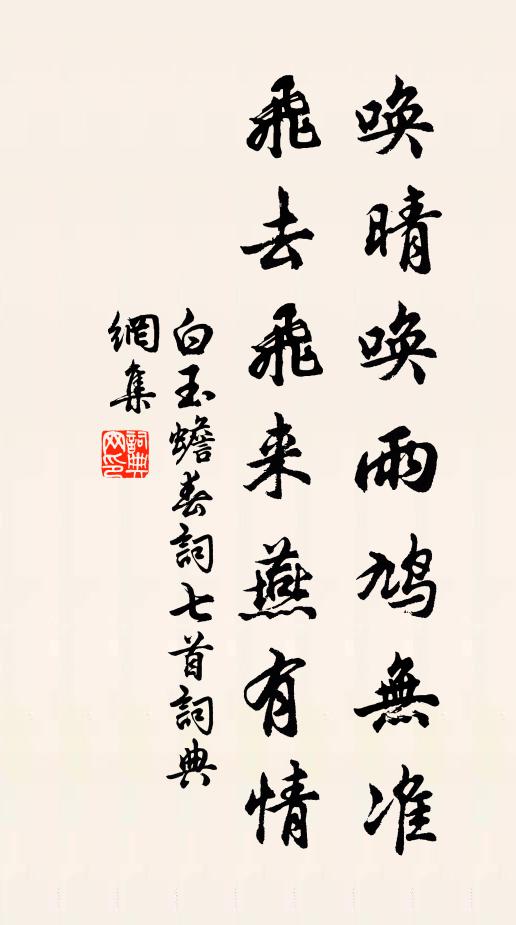 唤晴唤雨鸠無准
飛去飛来燕有情
白玉蟾春詞七首詞典
網集
詞典
网印